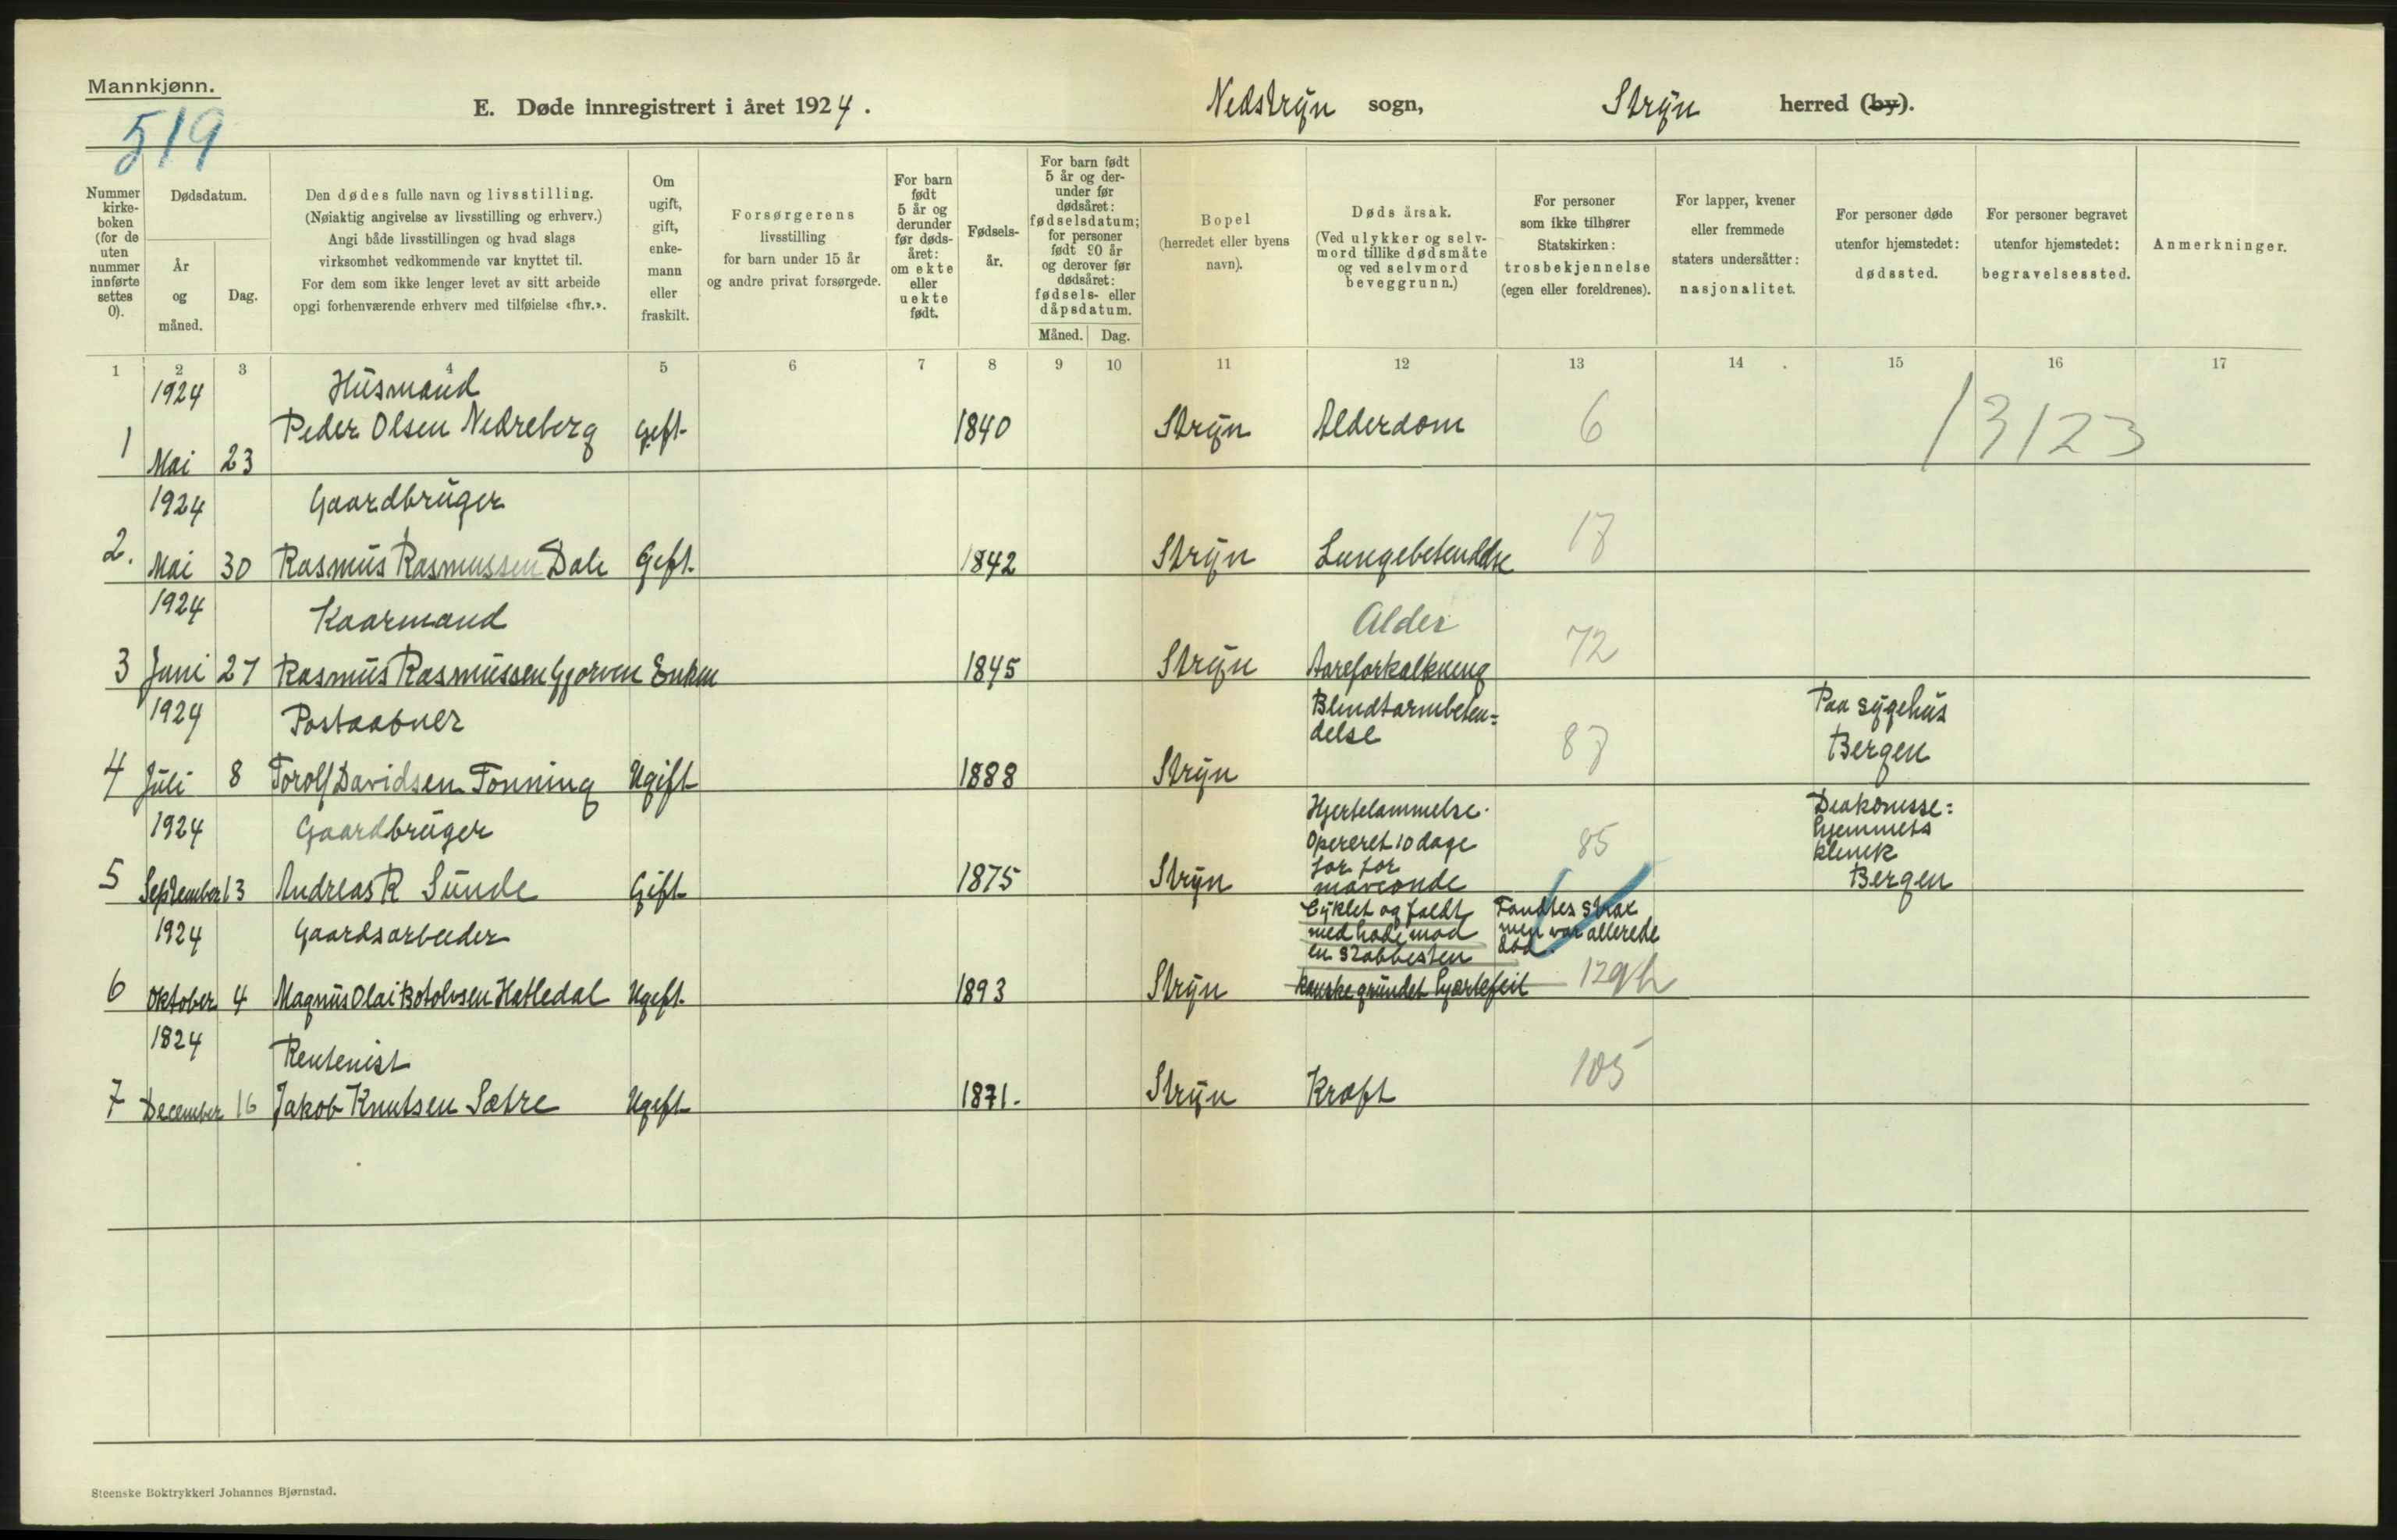 Mannkjønn.
519
E. Døde innregistrert i året 1924.
Nedstryn sogn,
Stryn herred (by).
Nummer
kirke-
boken
(for de
uten
nummer
innførte
settes
0).
Dødsdatum.
År
og
måned.
Dag.
Den dødes fulle navn og livsstilling.
(Nøiaktig angivelse av livsstilling og erhverv.)
Angi både livsstillingen og hvad slags
virksomhet vedkommende var knyttet til.
For dem som ikke lenger levet av sitt arbeide
opgi forhenværende erhverv med tilføielse «fhv.».
Om
ugift,
gift,
enke-
mann
eller
fraskilt.
Forsørgerens
livsstilling
for barn under 15 år
og andre privat forsørgede.
For barn
født
5 år og
derunder
før døds-
året:
om ekte
eller
uekte
født.
Fødsels-
år.
For barn født
5 år og der-
under før
dødsåret:
fødselsdatum;
for personer
født 90 år
og derover før
dødsåret:
fødsels- eller
dåpsdatum.
Måned. Dag.
Bopel
(herredet eller byens
navn).
Dødsårsak.
(Ved ulykker og selv-
mord tillike dødsmåte
og ved selvmord
beveggrunn.)
For personer
som ikke tilhører
Statskirken:
trosbekjennelse
(egen eller foreldrenes).
For lapper, kvener
eller fremmede
staters undersåtter:
nasjonalitet.
For personer døde
utenfor hjemstedet:
dødssted.
For personer begravet
utenfor hjemstedet:
begravelsessted.
Anmerkninger.
1 2 3 4 5 6 7 8 9 10 11 12 13 14 15 16 17
1924 Husmand
1 Mai 23 Peder Olsen Nedreberg Gift 1840 Stryn Alderdom 6 13123
1924 Gaardbruger
2. Mai 30 Rasmus Rasmussen Dale Gift. 1842 Stryn Lungebetendelse 17
1924 Kaarmand Alder
3 Juni 27 Rasmus Rasmussen Gjørven Enkm 1845 Stryn Aareforkalkning 72
1924 Postaabner Blindtarmbeten=
delse
Paa sygehus
Bergen
4 Juli 8 Torolf Davidsen Tonning Ugift 1888 Stryn 87
1924 Gaardbruger
Hjertelammelse.
Opereret 10 dage
før for
maveonde
Diakonisse=
hjemmets
klinik
Bergen
5 September 13 Andreas R Sunde Gift 1875 Stryn 85
1924 Gaardsarbeider
Cyklet og faldt
med hode mod
en stabbesten
kanske grundet hjærtefeil
Fandtes strax
men var allerede
død.
6 Oktober 4 Magnus Olai Botolvsen Hatledal Ugift. 1893 Stryn
1824 Rentenist
7 December 16 Jakob Knutsen Sætre Ugift 1871. Stryn Kræft 105
Steenske Boktrykkeri Johannes Bjørnstad.